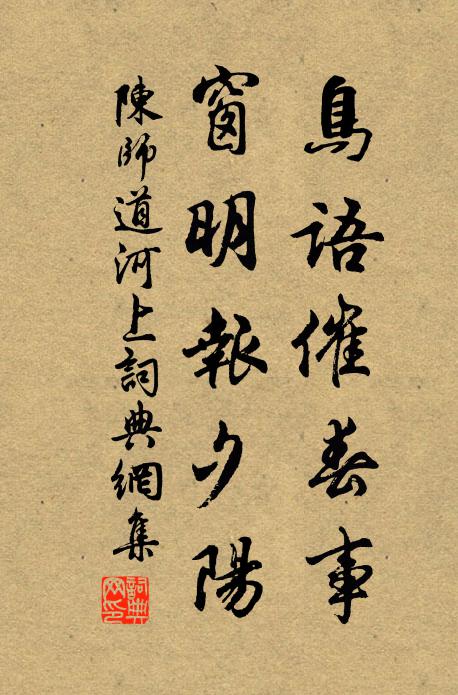 鳥語催春事
窗明報夕陽
陳師道河上詞典網集
詞典網印